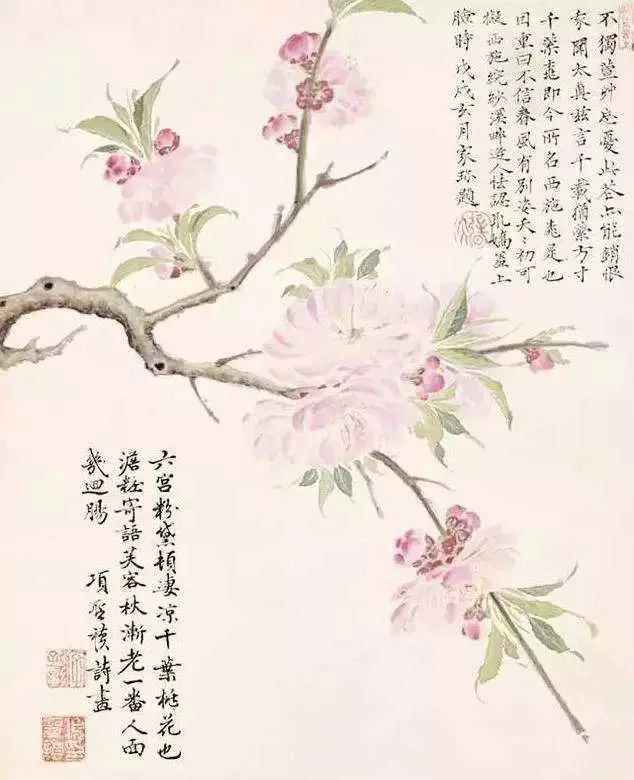 不獨萱艸忘憂此花亦能銷恨
聞太真玆言千載猶縈方寸
千葉桃即今所名西施桃是也
因重曰不信春風有別姿夭夭初可
擬西施浣紗溪畔逢人怯認嬌羞上
臉時戊戌亥月家珎題
六宮粉黛頓淒凉千葉桃花也
澹粧寄語芙容秋漸老一番人面
幾迴腸
項聖謨詩畫